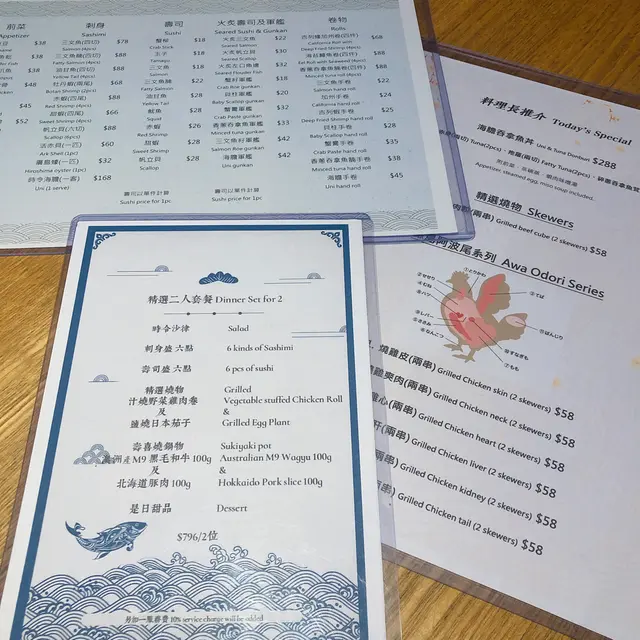 前菜
Appetizer
$38
$38
$38
$32
$45
$52
$45
刺身
Sashimi
三文魚(四切) $78
Salmon (4pcs)
三文魚腩(四切) $88
Fatty Salmon (4pcs)
油甘魚(四切) $88
Yellow Tail (4pcs)
牡丹蝦(兩尾) $68
Botan Shrimp (2pcs)
赤蝦(四尾) $66
Red Shrimp (4pcs)
甜蝦(四尾) $52
Sweet Shrimp (4pcs)
帆立貝(六切) $88
Scallop (6pcs)
赤貝(一隻) $60
Ark Shell (1pc)
廣島蠔(一隻) $32
Hiroshima oyster (1pc)
時令海膽(一客) $168
Uni (1 serve)
壽司
Sushi
蟹柳 $18
Crab Stick
玉子 $18
Tamago
三文魚 $18
Salmon
三文魚腩 $22
Fatty Salmon
油甘魚 $28
Yellow Tail
魷魚 $28
Squid
赤蝦 $26
Red Shrimp
甜蝦 $28
Sweet Shrimp
帆立貝 $28
Scallop
壽司以單件計算
Sushi price for 1pc
火炙壽司及軍艦
Seared Sushi & Gunkan
火炙三文魚 $22
Seared Salmon
火炙帆立貝 $30
Seared Scallop
火炙左口魚邊 $32
Seared Flouder Fish
蟹籽軍艦 $18
Crab Roe gunkan
貝柱軍艦 $20
Baby Scallop gunkan
蟹膏軍艦 $32
Crab Paste gunkan
香蔥吞拿魚軍艦 $33
Minced tuna gunkan
三文魚籽軍艦 $42
Salmon Roe gunkan
海膽軍艦 $42
Uni gunkan
壽司以單件計算
Sushi price for 1pc
卷物
Rolls
吉列蝦加州卷(四件) $68
California Roll with
Deep Fried Shrimp (4pcs)
$88
Eel Roll with Seaweed
香蔥吞拿魚腩卷(四件) $88
Minced tuna roll (4pcs)
三文魚手卷 $22
Salmon hand roll
加州手卷 $24
California hand roll
吉列蝦手卷 $25
Deep Fried Shrimp hand roll
貝柱手卷 $28
Baby Scallop hand roll
蟹膏手卷 $35
Crab Paste hand roll
香蔥吞拿魚手卷 $38
Minced tuna hand roll
海膽手卷 $45
Uni hand roll
料理長推介 Today's Special
海膽吞拿魚丼 Uni & Tuna Donburi $288
Tuna(2pcs)、魚腩(兩切) Fatty Tuna(2pcs)、
Appetizer, steamed egg, miso soup included.
精選燒物 Skewers
(兩串) Grilled beef cube (2 skewers) $58
阿波尾系列 Awa Odori Series
燒雞皮(兩串) Grilled Chicken skin (2 skewers) $58
雞爽肉(兩串) Grilled Chicken neck (2 skewers) $58
雞心(兩串) Grilled Chicken heart (2 skewers) $58
肝(兩串) Grilled Chicken liver (2 skewers) $58
(兩串) Grilled Chicken kidney (2 skewers) $58
Grilled Chicken tail (2 skewers) $58
精選二人套餐 Dinner Set for 2
時令沙律 Salad
刺身盛 六點 6 kinds of Sashimi
壽司盛 六點 6 pcs of sushi
精選燒物 Grilled
汁燒野菜雞肉卷 Vegetable stuffed Chicken Roll
及 &
鹽燒日本茄子 Grilled Egg Plant
壽喜燒鍋物 Sukiyaki pot
澳洲產M9 黑毛和牛 100g Australian M9 Wagyu 100g
及 &
北海道豚肉 100g Hokkaido Pork slice 100g
是日甜品 Dessert
$796/2位
另加一服務費 10% service charge will be added